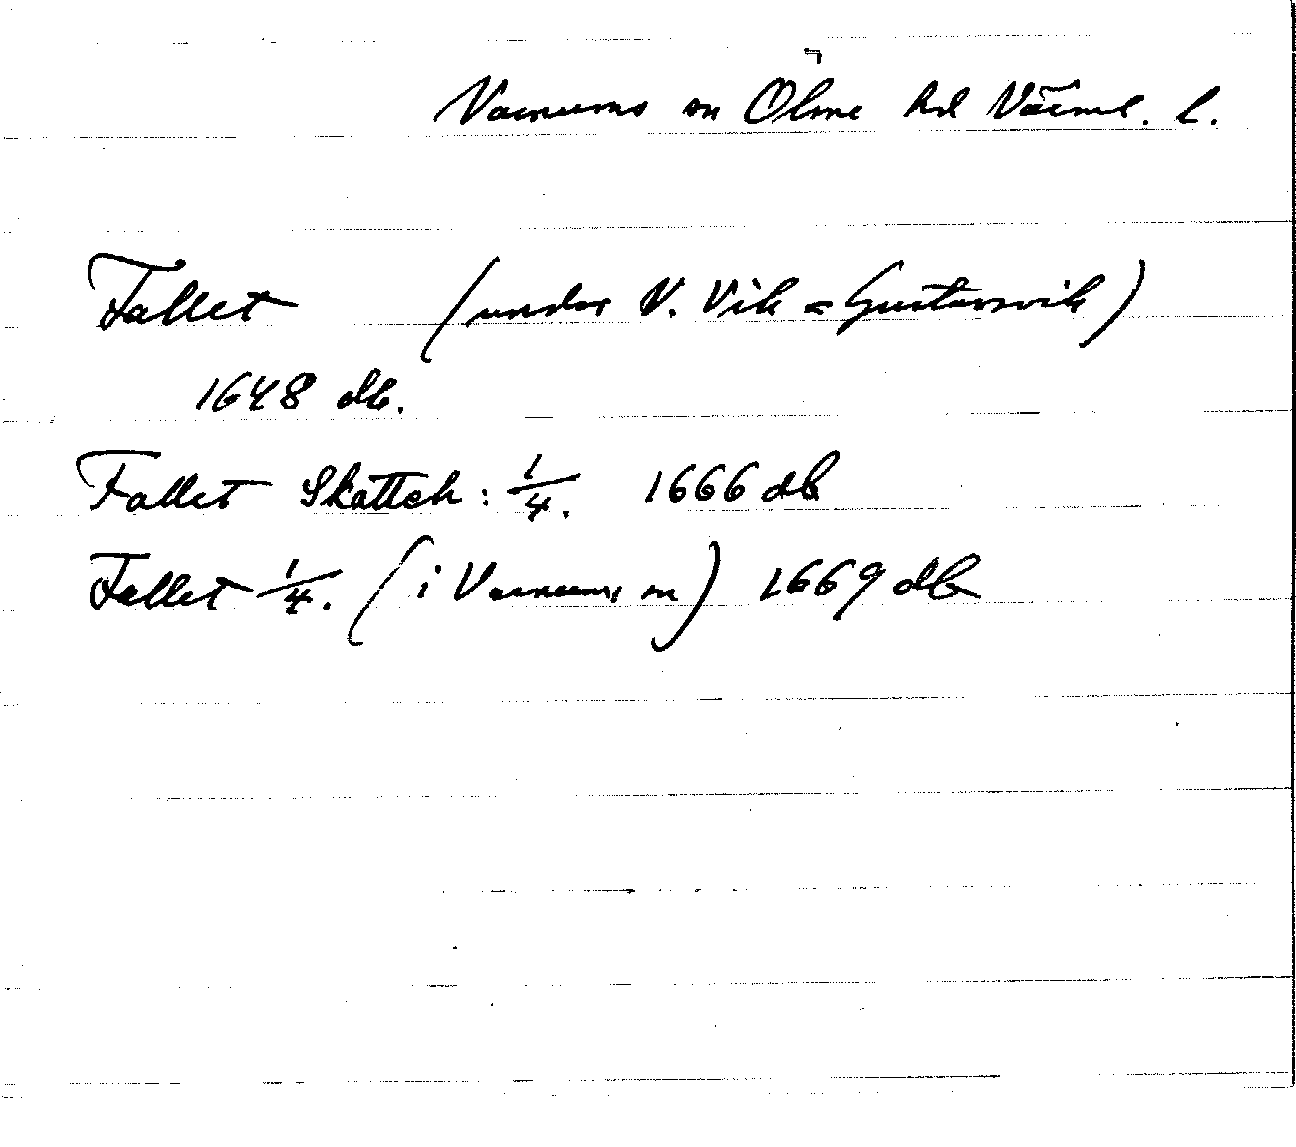 Varnums sn Ölme hd Värml. l.
Fallet (under V. Vik = Gustavsvik)
1648 db.
Fallet Skatteh: 1/4. 1666 db
Fallet 1/4. (i Varnums sn) 1669 db